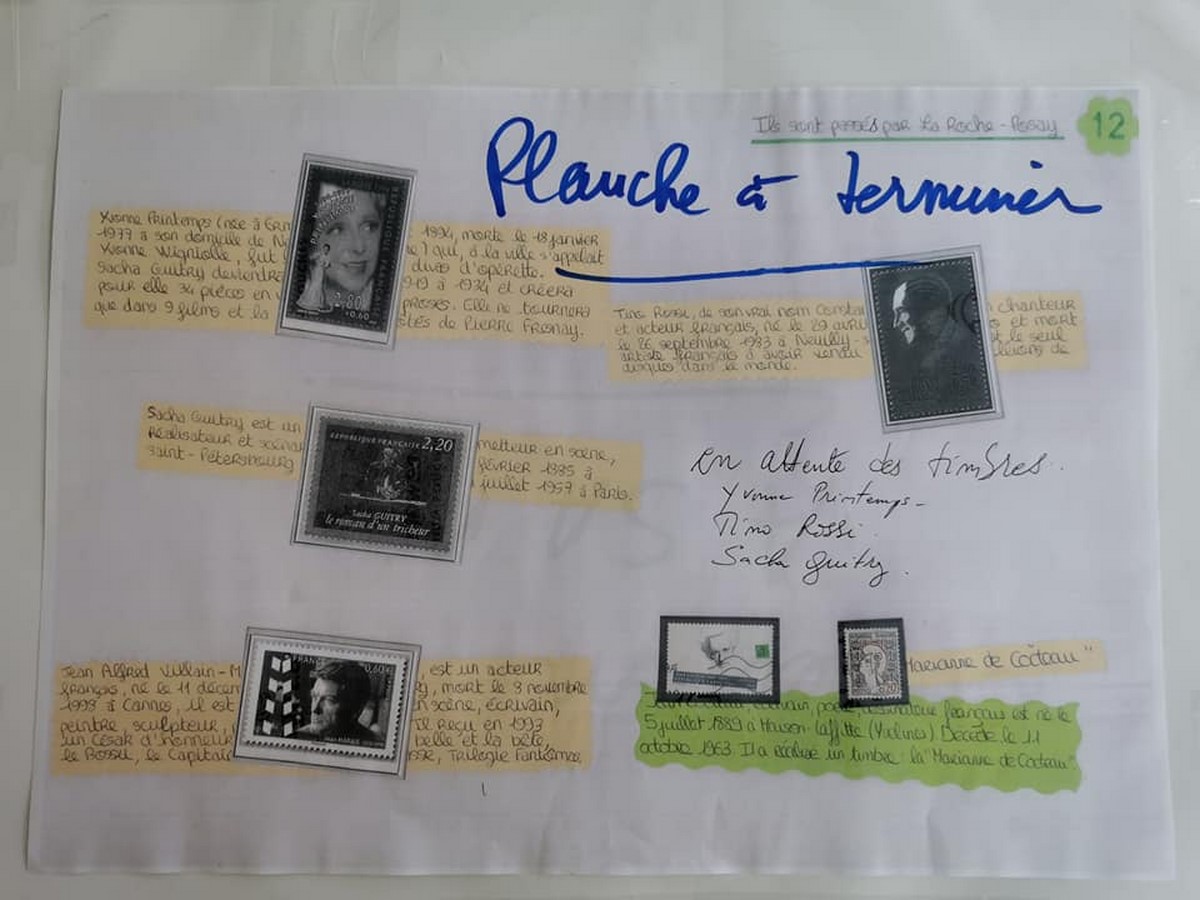 Ils sont passés par La Roche-Posay
12
Planche à terminer
Yvonne Printemps (née à Ern 1894, morte le 18 janvier
1977 à son domicile de Ne
Yvonne Wigniolle, fut qui, à la ville s'appelait
Sacha Guitry deviendra divas d'opérette.
pour elle 34 pièces en 1919 à 1934 et créera
que dans 9 films et la proses. Elle ne tournera
côtés de Pierre Fresnay.
2,80
+0,60
Tino Rossi, de son vrai nom Constan chanteur
et acteur français, né le 29 avril et mort
le 26 septembre 1983 à Neuilly-s t le seul
artiste français à avoir vendu llions de
disques dans le monde.
Sacha Guitry est un metteur en scène,
Réalisateur et scénar février 1885 à
Saint-Pétersbourg juillet 1957 à Paris.
REPUBLIQUE FRANÇAISE 2,20
Sacha GUITRY
le roman d'un tricheur
en attente des timbres..
Yvonne Printemps -
Tino Rossi.
Sacha Guitry.
Jean Alfred Villain-M est un acteur
français, né le 11 décem rg, mort le 8 novembre
1998 à Cannes, il est n scène, écrivain,
peintre, sculpteur, Il reçu en 1993
un César d'honneur belle et la bête,
le Bossu, le Capitai sse, Trilogie Fantômas.
FRANCE
0,60€
JEAN MARAIS
"Marianne de Cocteau"
écrivain, poète, dessinateur français est né le
5 juillet 1889 à Maison-Laffitte (Yvelines) Décédé le 11
octobre 1963. Il a réalisé un timbre: la "Marianne de Cocteau"